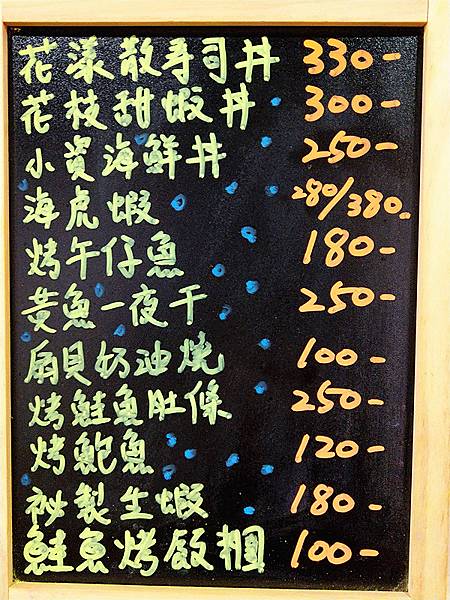 花漾散壽司丼 330-
花枝甜蝦丼 300-
小資海鮮丼 250-
海虎蝦 280/380-
烤午仔魚 180-
黃魚一夜干 250-
扇貝奶油燒 100-
烤鮭魚肚條 250-
烤鮑魚 120-
祕製生蝦 180-
鮭魚烤飯糰 100-